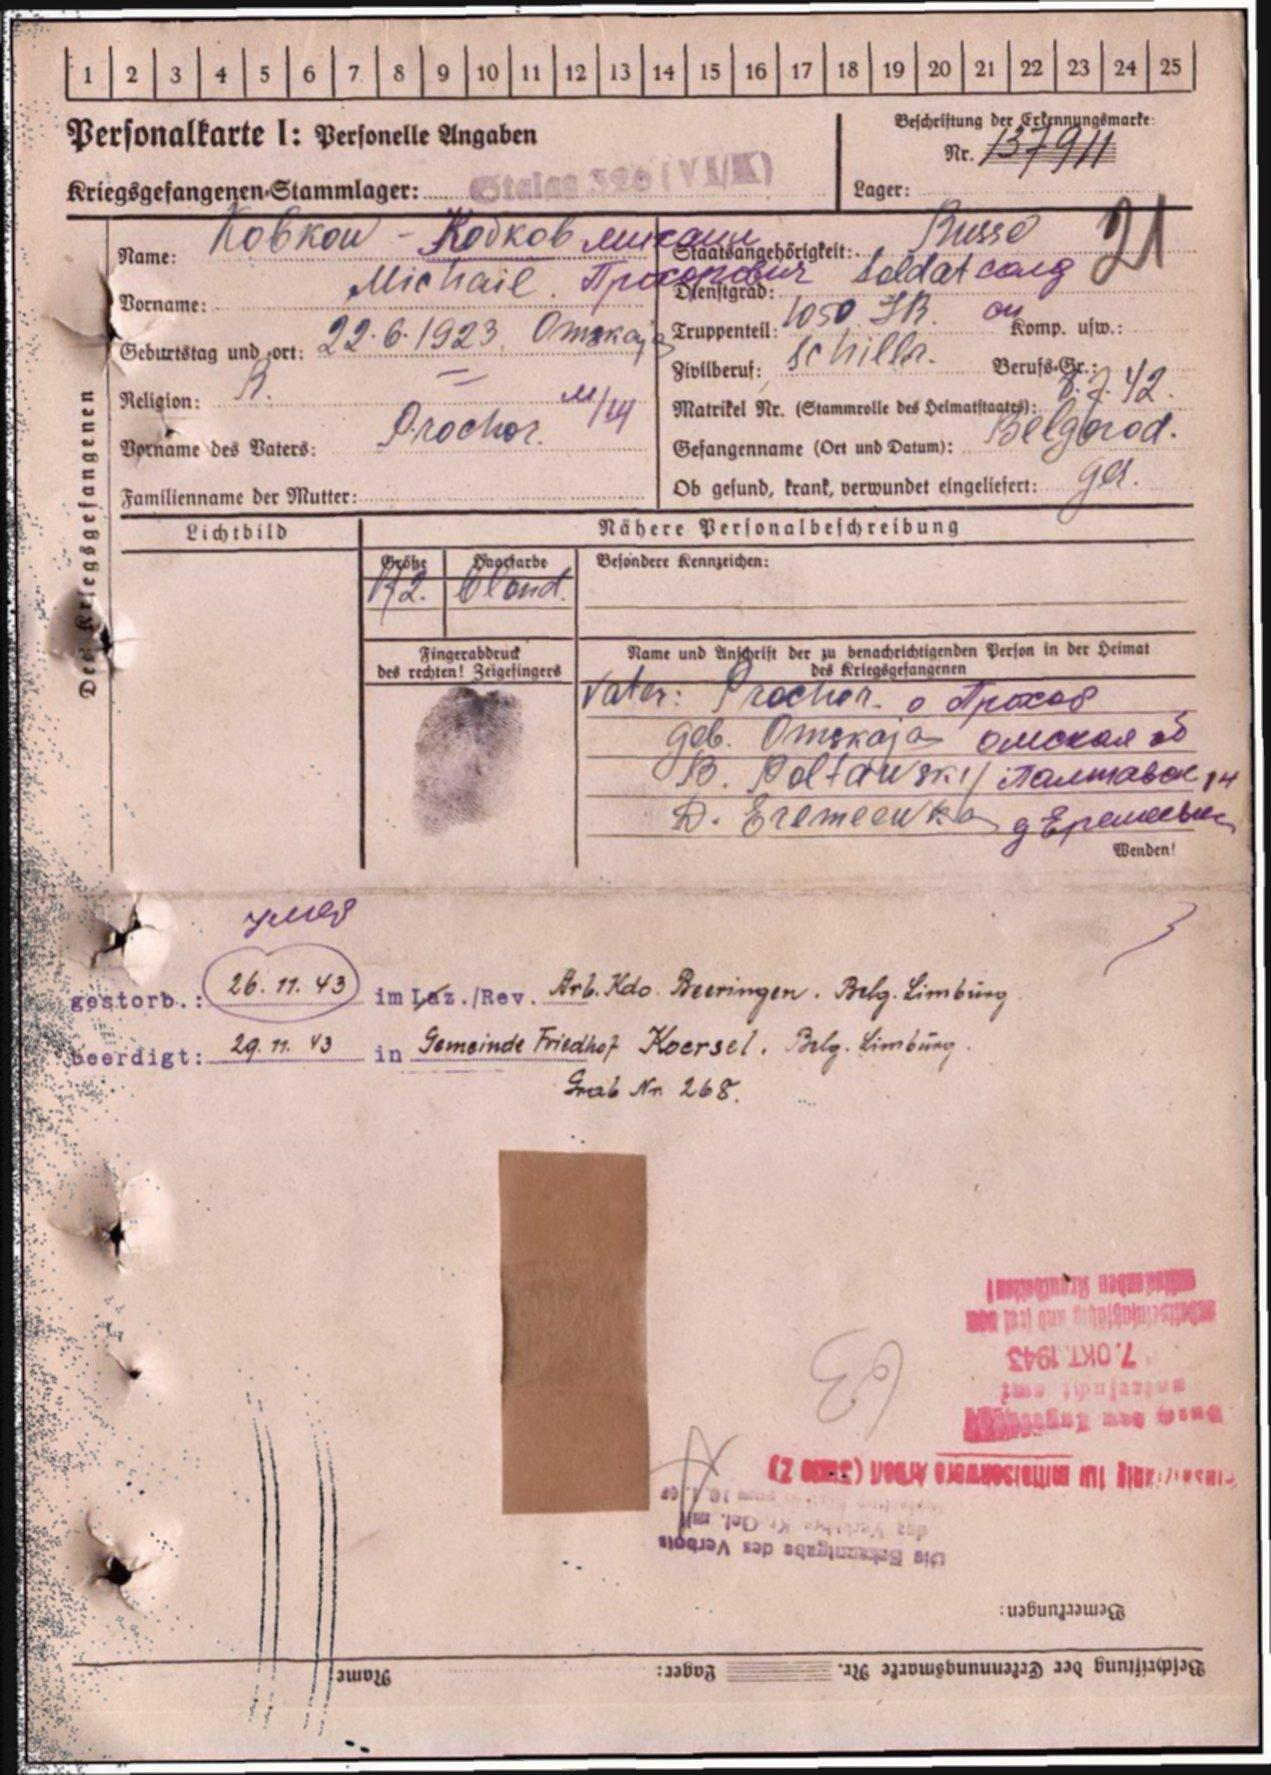 1 2 3 4 5 6 7 8 9 10 11 12 13 14 15 16 17 18 19 20 21 22 23 24 25
Personalkarte I: Personelle Angaben
Beschriftung der Erkennungsmarke:
Nr. 137911
Kriegsgefangenen-Stammlager: Stalag 326 (VI/K)
Lager:
21
Des Kriegsgefangenen
Name: Kobkow - Кобков михаил
Vorname: Michail. Прохорович
Geburtstag und -ort: 22.6.1923. Omskaja
Religion: R.
Vorname des Vaters: Prochor.
Familienname der Mutter:
Staatsangehörigkeit: Russe
Dienstgrad: Soldat солд
Truppenteil: 1050 I.R. Komp. usw.:
Zivilberuf: Berufs-Gr.:
Matrikel Nr. (Stammrolle des Heimatstaates): 8.7.42.
Gefangennahme (Ort und Datum): Belgorod.
Ob gesund, krank, verwundet eingeliefert: ges.
Lichtbild
Nähere Personalbeschreibung
Größe Haarfarbe Besondere Kennzeichen:
172. blond.
Fingerabdruck
des rechten! Zeigefingers
Name und Anschrift der zu benachrichtigenden Person in der Heimat
des Kriegsgefangenen
Vater: Prochor. о Прохор
geb. Omskaja омская об
R. Poltawski
D. Eremeewka
Wenden!
умер
gestorb.: 26.11.43 im Laz./Rev. Arb. Kdo. Beeringen. Belg. Limburg
beerdigt: 29.11.43 in Gemeinde Friedhof Koersel. Belg. Limburg.
Grab Nr. 268.
ansteckenden Krankheiten!
arbeitseinsatzfähig und frei von
7. OKT. 1943
untersucht auf
für mittelschwere Arbeit
des Verkehrs Kr. Gef. mit
Die Bekanntgabe des Verbots
Bemerkungen:
Beschriftung der Erkennungsmarke Nr. Lager: Name